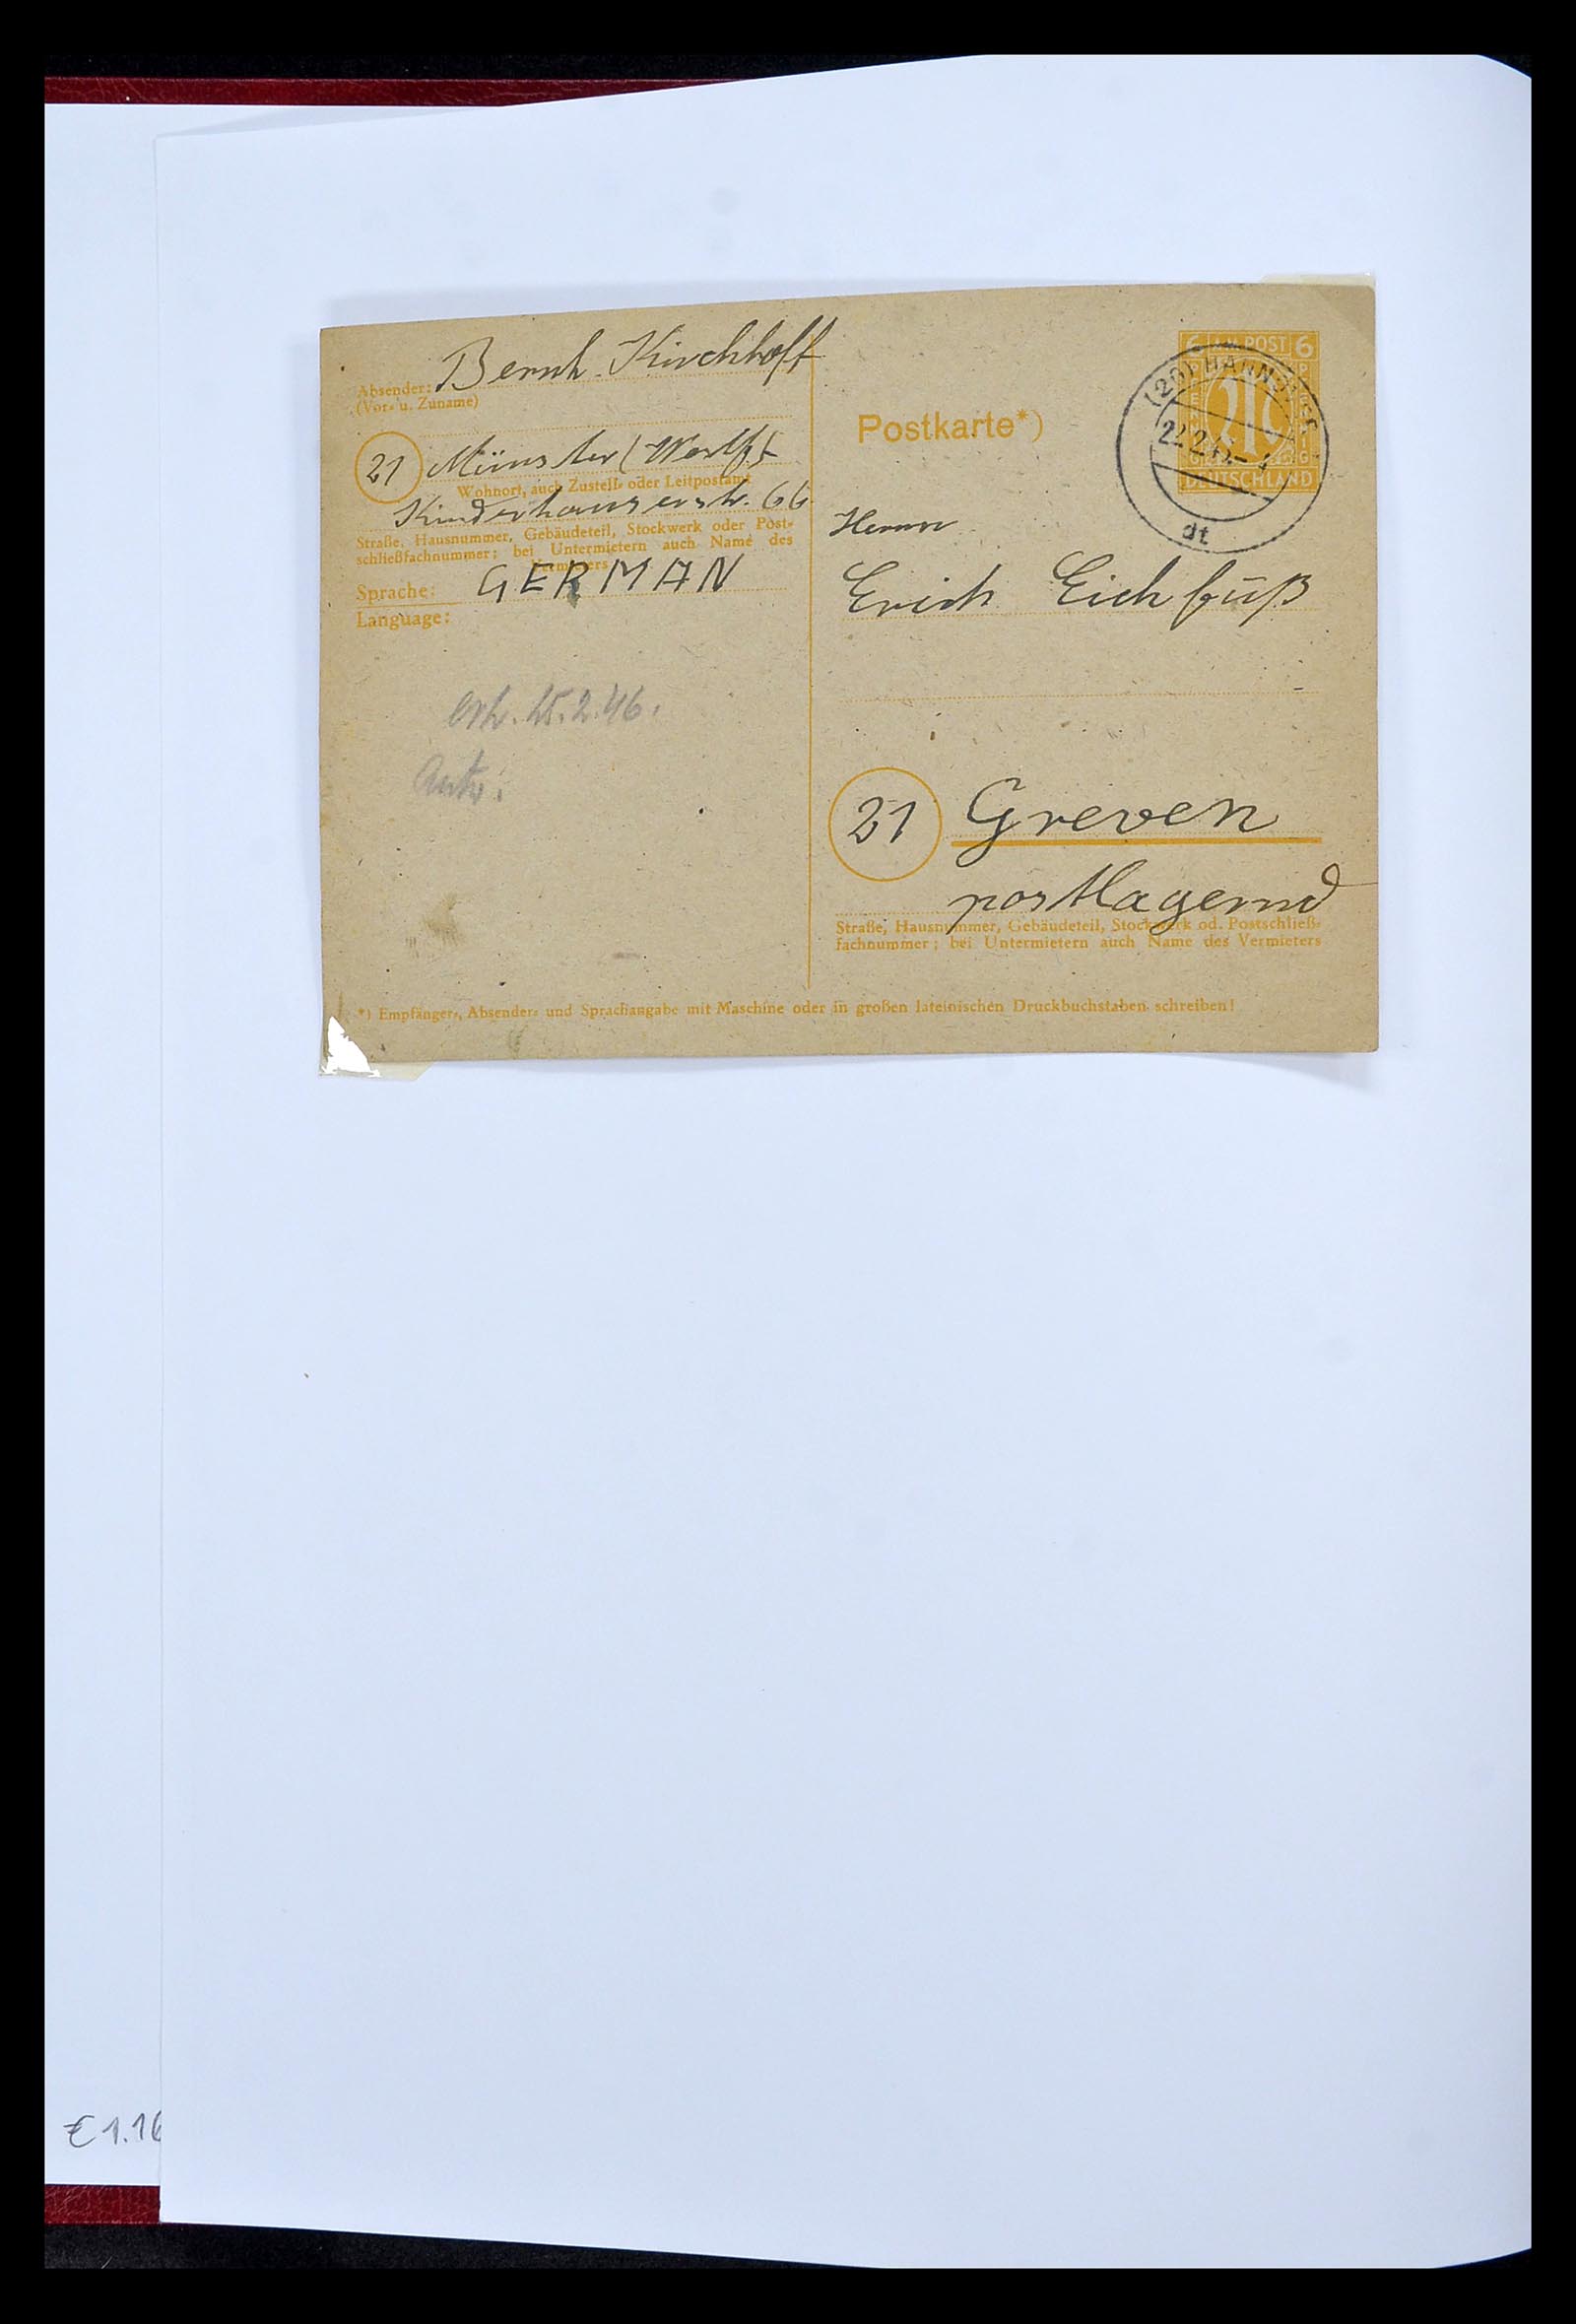 Bernh. Kirchhoff
Absender:
(Vor- u. Zuname)
21 Münster (Westf.)
Wohnort, auch Zustell- oder Leitpostamt
Kinderhauserstr. 66
Straße, Hausnummer, Gebäudeteil, Stockwerk oder Post-
schließfachnummer; bei Untermietern auch Name des
Vermieters
Sprache: GERMAN
Language:
Erh. 25.2.46.
Antw.
6 POST 6
DEUTSCHLAND
(20) HANNOVER
22.2.
dt
Postkarte*)
Herrn
Erich Eichfuß
21 Greven
postlagernd
Straße, Hausnummer, Gebäudeteil, Stockwerk od. Postschließ-
fachnummer; bei Untermietern auch Name des Vermieters
*) Empfänger-, Absender- und Sprachangabe mit Maschine oder in großen lateinischen Druckbuchstaben schreiben!
€ 1.16